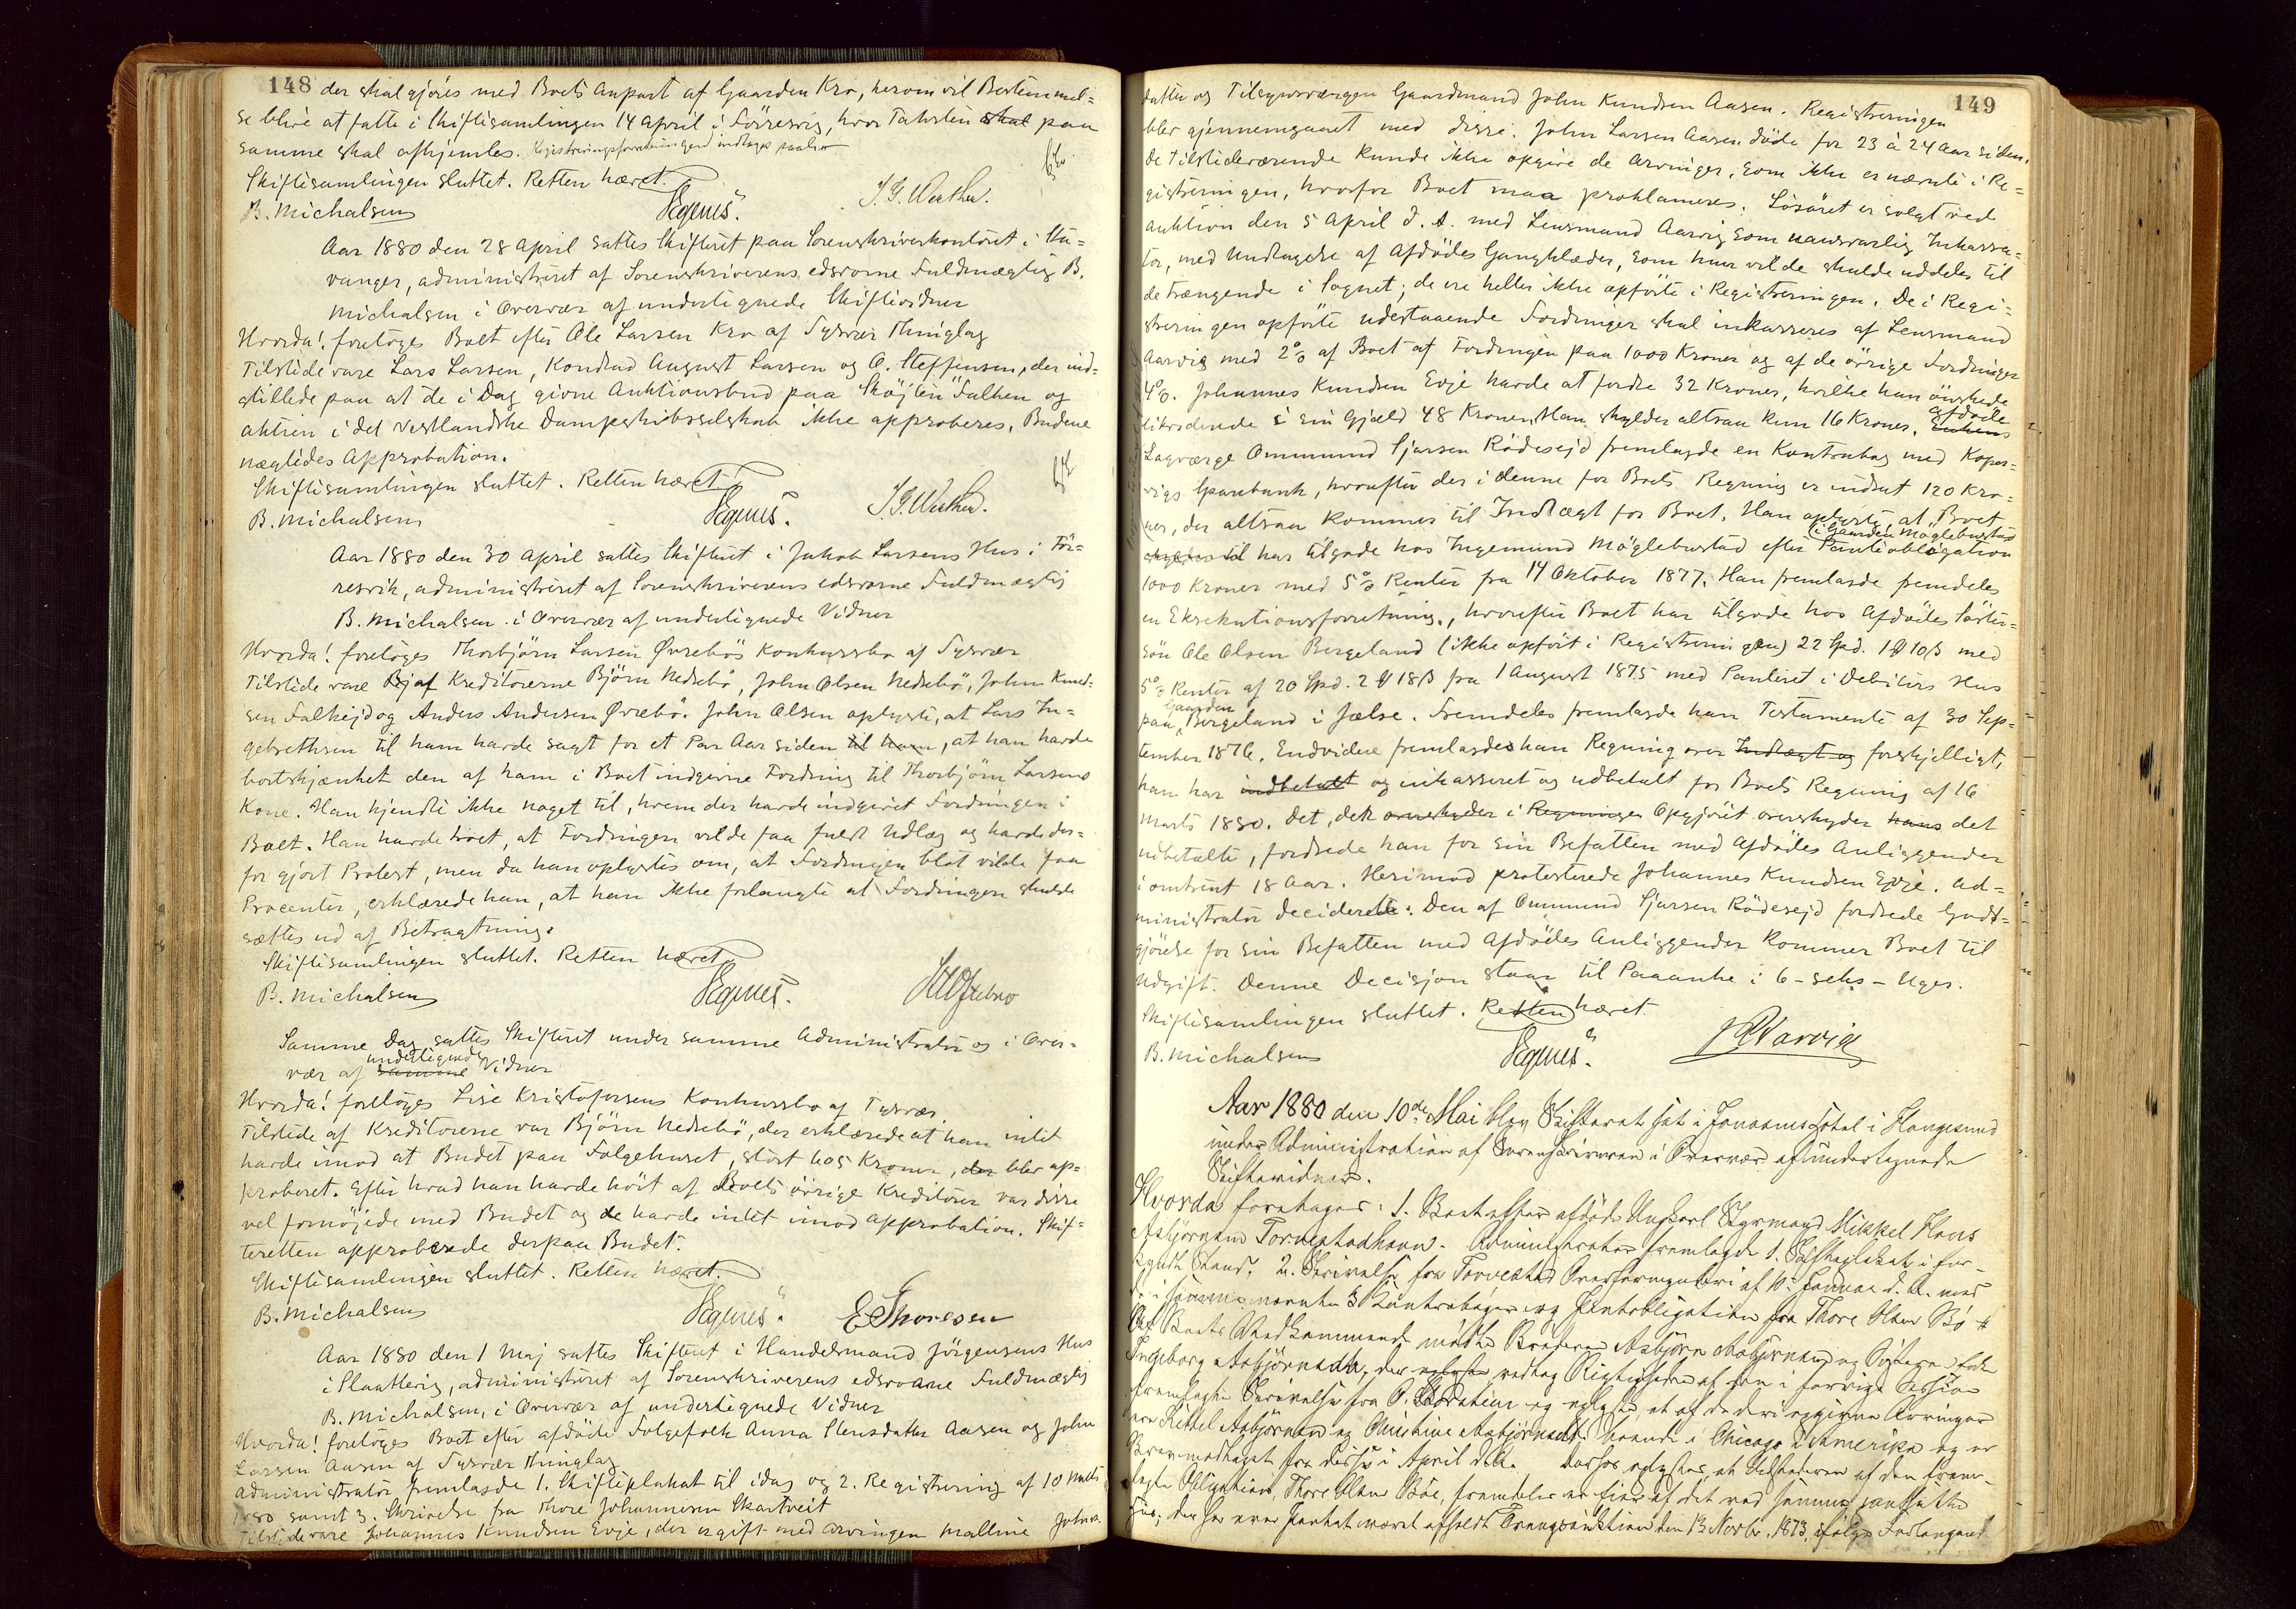 148
der skal gjöres med Boets Anpart af Gaarden Kro, herom vil Bestemmel=
se blive at fatte i Skiftesamlingen 14 April i Förresvig, hvor Taksten skal paa
samme skal afhjemles. Registreringsforretningen indtages saalr
Skiftesamlingen sluttet. Retten hævet.
B. Michalsen Vegnes. J. G. Weether.
Aar 1880 den 28 April sattes Skifteret paa Sorenskriverkontoret i Sta=
vanger, administreret af Sorenskriverens edsvorne Fuldmægtig B.
Michalsen i Overvær af undertegnede Skiftevidner
Hvorda! foretoges Boet efter Ole Larsen Kro af Tysvær Thinglag
Tilstede vare Lars Larsen, Konrad August Larsen og O. Steffensen, der ind=
stillede paa at de i Dag givne Auktionsbud paa Skøjten "Falken og
aktien i det vestlandske Dampskibsselskab ikke approberes. Budene
nægtedes Approbation.
Skiftesamlingen sluttet. Retten hævet
B. Michalsen Vegnes. J. G. Weether.
Aar 1880 den 30 April sattes Skifteret i Jakob Larsens Hus i För=
resvik, administreret af Sorenskriverens edsvorne Fuldmægtig
B. Michalsen i Overvær af undertegnede Vidner
Hvorda! foretoges Thorbjörn Larsen Øvrebös Konkursbo af Tysvær
Tilstede vare Bj af Kreditorerne Björn Nedrebö, John Olsen Nedrebö, John Knud=
sen Falkejd og Anders Andersen Øvrebö. John Olsen oplyste, at Lars In=
gebrethsen til ham havde sagt for et Par Aar siden til ham, at han havde
bortskjænket den af ham i Boet indgivne Fordring til Thorbjörn Larsens
Kone. Han kjendte ikke noget til, hvem der havde indgivet Fordringen i
Boet. Han havde troet, at Fordringen vilde faa fuldt Udlæg og havde der=
for gjort Protest, men da han oplystes om, at Fordringen blot vilde faa
Procenter, erklærede han, at han ikke forlangte at Fordringen skulde
sættes ud af Betragtning.
Skiftesamlingen sluttet. Retten hævet
B. Michalsen Vegnes.
Samme Dag sattes Skifteret under samme Administrator og i Over=
vær af samme undertegnede Vidner
Hvorda! foretoges Lise Kristofersens Konkursbo af Tysvær.
Tilstede af Kreditorerne var Björn Nedrebö, der erklærede at han intet
havde imod at Budet paa Folgehuset, stort 405 Kroner, der blev ap=
proberet. Efter hvad han havde hört af Boets övrige Kreditorer var disse
vel fornöjede med Budet og de havde intet imod Approbation. Skif=
teretten approberede derpaa Budet.
Skiftesamlingen sluttet. Retten hævet.
B. Michalsen Vegnes. E Thoresen
Aar 1880 den 1 Maj sattes Skifteret i Handelsmand Jörgensens Hus
i Slaattevig, administreret af Sorenskriverens edsvorne Fuldmægtig
B. Michalsen, i Overvær af undertegnede Vidner
Hvorda! foretoges Boet efter afdöde Folgefolk Anna Stensdatter Aasen og John
Larsen Aasen af Tysvær Thinglag
Administrator fremlagde 1. Skifteplakat til idag og 2. Registrering af 10 Marts
1880 samt 3. Skrivelse fra Thore Johannesen Skartveit
Tilstede vare Johannes Knudsen Evje, der er gift med Arvingen Malline Johns=
149
datter og Tilsynsværgen Gaardmand John Knudsen Aasen. Registreringen
blev gjennemgaaet med disse. John Larsen Aasen döde for 23 à 24 Aar siden.
de tilstedeværende kunde ikke opgive de Arvinger, som ikke er nævnte i Re=
gistreringen, hvorfor Boet maa proklameres. Lösöret er solgt ved
Auktion den 5 April d. A. med Lensmand Aarvig som uansvarlig Inkassa=
tor, med Undtagelse af Afdödes Gangklæder, som hun vilde skulde uddeles til
de trængende i Sognet; de ere heller ikke opförte i Registreringen. De i Regi=
streringen opförte udestaaende Fordringer skal inkasseres af Lensmand
Aarvig med 2% af Boet af Fordringen paa 1000 Kroner og af de övrige Fordringer
4%. Johannes Knudsen Evje havde at fordre 32 Kroner, hvilke han önskede
likviderede i sin Gjæld 48 Kroner. Han skylder altsaa kun 16 Kroner. Enkens afdöde
Lagværge Ommund Sjursen Rödesejd fremlagde en Kontrabog med Koper=
vigs Sparebank, hvorefter der i denne for Boets Regning er indsat 120 Kro=
ner, der altsaa kommer til Indtægt for Boet. Han oplyste, at Boet
har tilgode hos Ingemund Möglebustad efter Pantobligation i Gaarden Möglebustad
1000 Kroner med 5% Renter fra 14 Oktober 1877. Han fremlagde fremdeles
en Eksekutionsforretning, hvorefter Boet har tilgode hos Afdödes Söster=
sön Ole Olsen Bergeland (ikke opfört i Registreringen) 22 Spd. 1 ₰ 10 ß med
5% Renter af 20 Spd. 2 ₰ 18 ß fra 1 August 1875 med Panteret i Debitors Hus
paa Gaarden Bergeland i Jælse. Fremdeles fremlagde han Testamente af 30 Sep=
tember 1876. Endvidere fremlagdes han Regning over Indtægt og forskjelligt,
han har indbetalt og inkasseret og udbetalt for Boets Regning af 16
Marts 1880. Det, der overskyder i Regningen Opgjöret overskyder hans det
udbetalte, fordrede han for sin Befatten med Afdödes Anliggender
i omtrent 18 Aar. Herimod protesterede Johannes Knudsen Evje. Ad=
ministrator deciderede: Den af Ommund Sjursen Rödesejd fordrede Godt=
gjörelse for sin Befatten med Afdödes Anliggender kommer Boet til
Udgift. Denne Decisjon staar til Paaanke i 6 - seks - Uger.
Skiftesamlingen sluttet. Retten hævet
B. Michalsen Vegnes. Aarvig
Aar 1880 den 10de Mai blev Skifteret sat i Jonassens Hotel i Haugesund
under Administration af Sorenskriveren i Overvær af undertegnede
Skiftevidner.
Hvorda foretages: 1. Boet efter afdöde Ungkarl Styrmand Mikkel Hans
Asbjörnsen Torvestadhavn. Administrator fremlagde 1. Skifteplakat i for-
kyndt Stand, 2. Skrivelse fra Torvestad Overformynderi af 10. Januar d. A. med
de i samme nævnte 3 Kontraböger og Panteobligation fra Thore Olsen Bö
Af Boets Vedkommende mödte Broderen Asbjörn Asbjörnsen og Sösteren
Ingeborg Asbjörnsdtr, der vedtog Rigtigheden af den i forrige Session
fremlagte Skrivelse fra og oplyste, at af de deri opgivne Arvinger
ere Kittel Asbjörnsen og Christine Asbjörnsdtr boende i Chicago i Amerika og er
Brev modtaget fra disse i April d. A. Derhos oplystes, at Udstederen af den frem-
lagte Obligation, Thore Olsen Böe, fremdeles er Eier af det ved samme pantsatte
Hus; der har over Pantet været afholdt Tvangsauktion den 13 Novbr. 1873, ifölge Forlangende